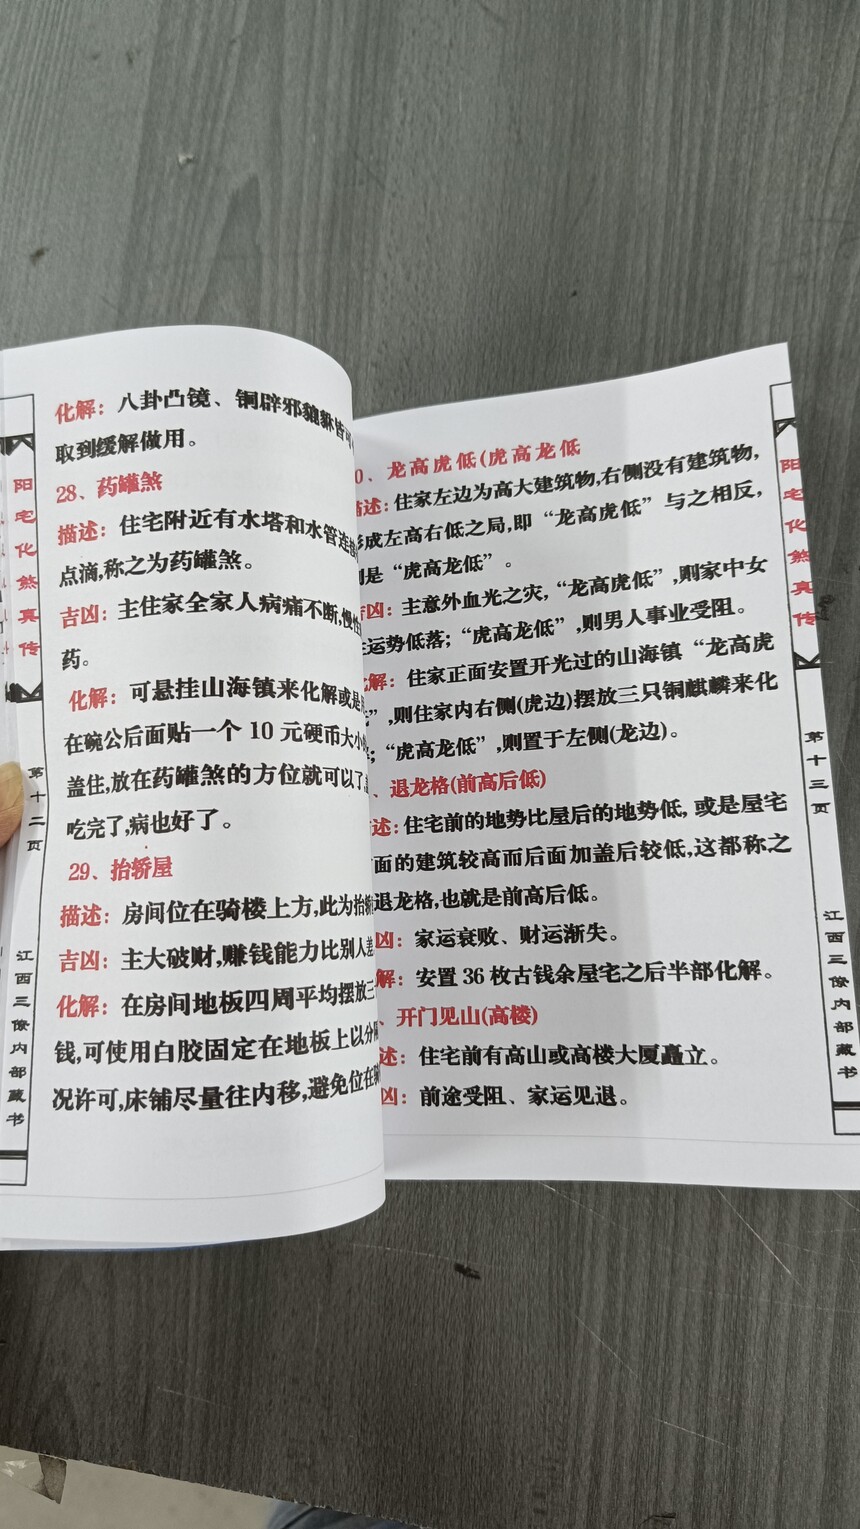 化解：八卦凸镜、铜辟邪貔貅皆可
取到缓解做用。
28、药罐煞
描述：住宅附近有水塔和水管连
点滴,称之为药罐煞。
吉凶：主住家全家人病痛不断,慢性
药。
化解：可悬挂山海镇来化解或是
在碗公后面贴一个 10 元硬币大小
盖住,放在药罐煞的方位就可以了
吃完了,病也好了。
29、抬轿屋
描述：房间位在骑楼上方,此为抬轿
吉凶：主大破财,赚钱能力比别人差
化解：在房间地板四周平均摆放三
钱,可使用白胶固定在地板上以分
况许可,床铺尽量往内移,避免位在
阳宅化煞真传
第十二页
江西三僚内部藏书
0、龙高虎低(虎高龙低
述：住家左边为高大建筑物,右侧没有建筑物,
形成左高右低之局,即“龙高虎低”与之相反,
则是“虎高龙低”。
吉凶：主意外血光之灾,“龙高虎低”,则家中女
运势低落；“虎高龙低”,则男人事业受阻。
化解：住家正面安置开光过的山海镇“龙高虎
”,则住家内右侧(虎边)摆放三只铜麒麟来化
；“虎高龙低”,则置于左侧(龙边)。
、退龙格(前高后低)
述：住宅前的地势比屋后的地势低,或是屋宅
面的建筑较高而后面加盖后较低,这都称之
退龙格,也就是前高后低。
凶：家运衰败、财运渐失。
解：安置 36 枚古钱余屋宅之后半部化解。
、开门见山(高楼)
述：住宅前有高山或高楼大厦矗立。
凶：前途受阻、家运见退。
阳宅化煞真传
第十三页
江西三僚内部藏书